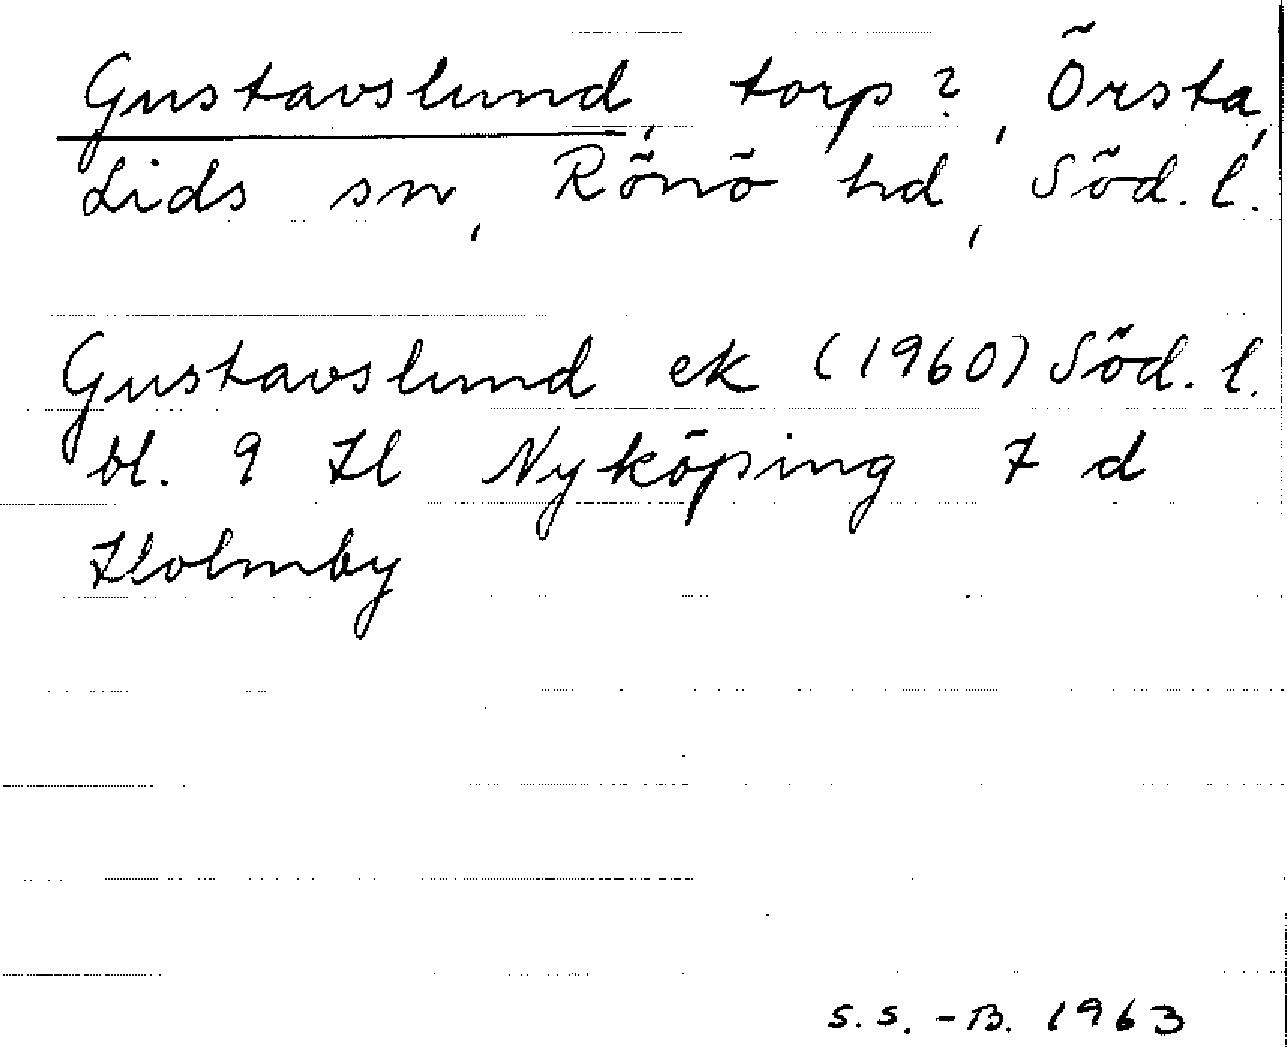 Gustavslund, torp?, Örsta,
Lids sn, Rönö hd, Söd. l.
Gustavslund ek (1960) Söd. l.
bl. 9 H Nyköping 7 d
Holmby
S.S.-B. 1963